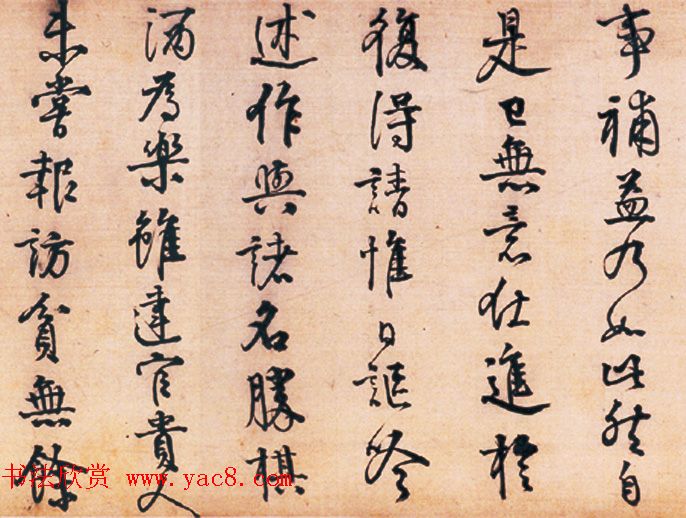 事補益乃如此然自
是已無意仕進樞
復得請惟日謳吟
述作與諸名勝棋
酒為樂雖達官貴人
未嘗報訪貧無餘
书法欣赏 www.yac8.com